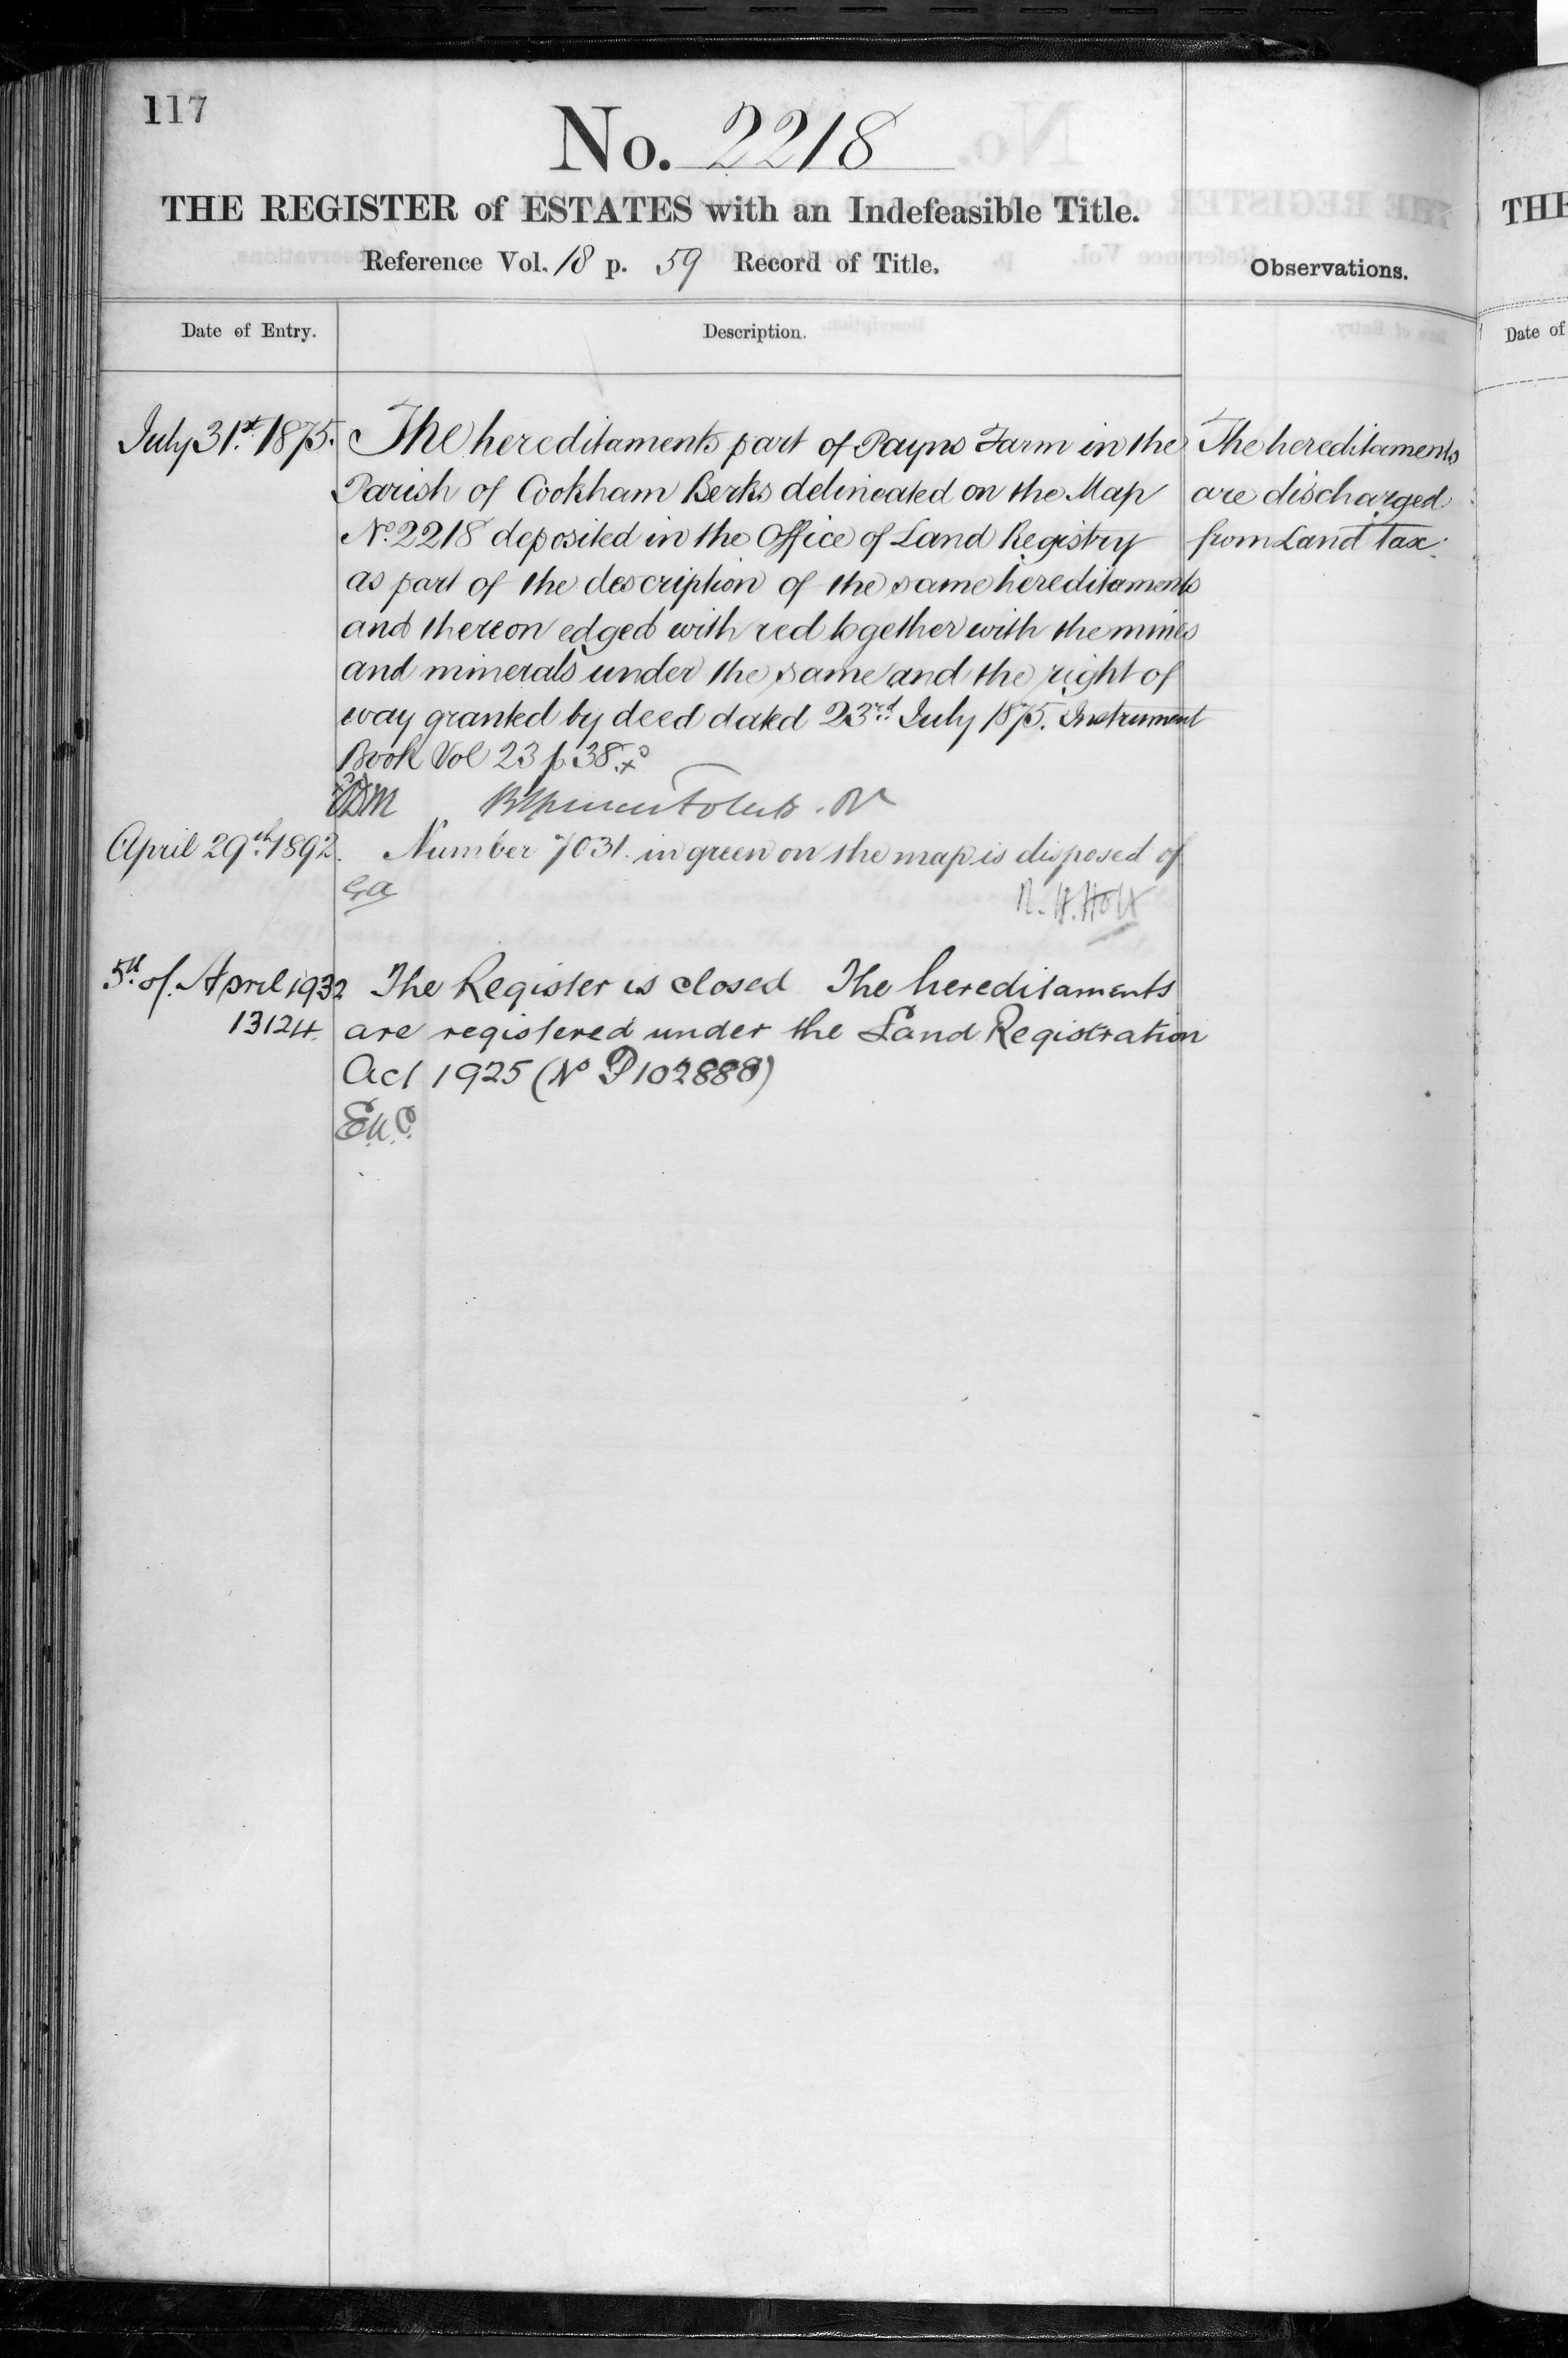 117
No. 2218
THE REGISTER of ESTATES with an Indefeasible Title.
Reference Vol. 18 p. 59 Record of Title.
Observations.
Date of Entry.
Description.
July 31st. 1875.
The hereditaments part of Payns Farm in the
Parish of Cookham Berks delineated on the Map
No. 2218 deposited in the Office of Land Registry
as part of the description of the same hereditaments
and thereon edged with red together with the mines
and minerals under the same and the right of
way granted by deed dated 23rd. July 1875. Instrument
Book Vol 23 p. 38.
The hereditaments
are discharged
from Land Tax.
April 29th. 1892.
Number 7031. in green on the map is disposed of
R. H. Holt
5th of April 1932
13124
The Register is closed The hereditaments
are registered under the Land Registration
Act 1925 (No P102888)
THE
Date of